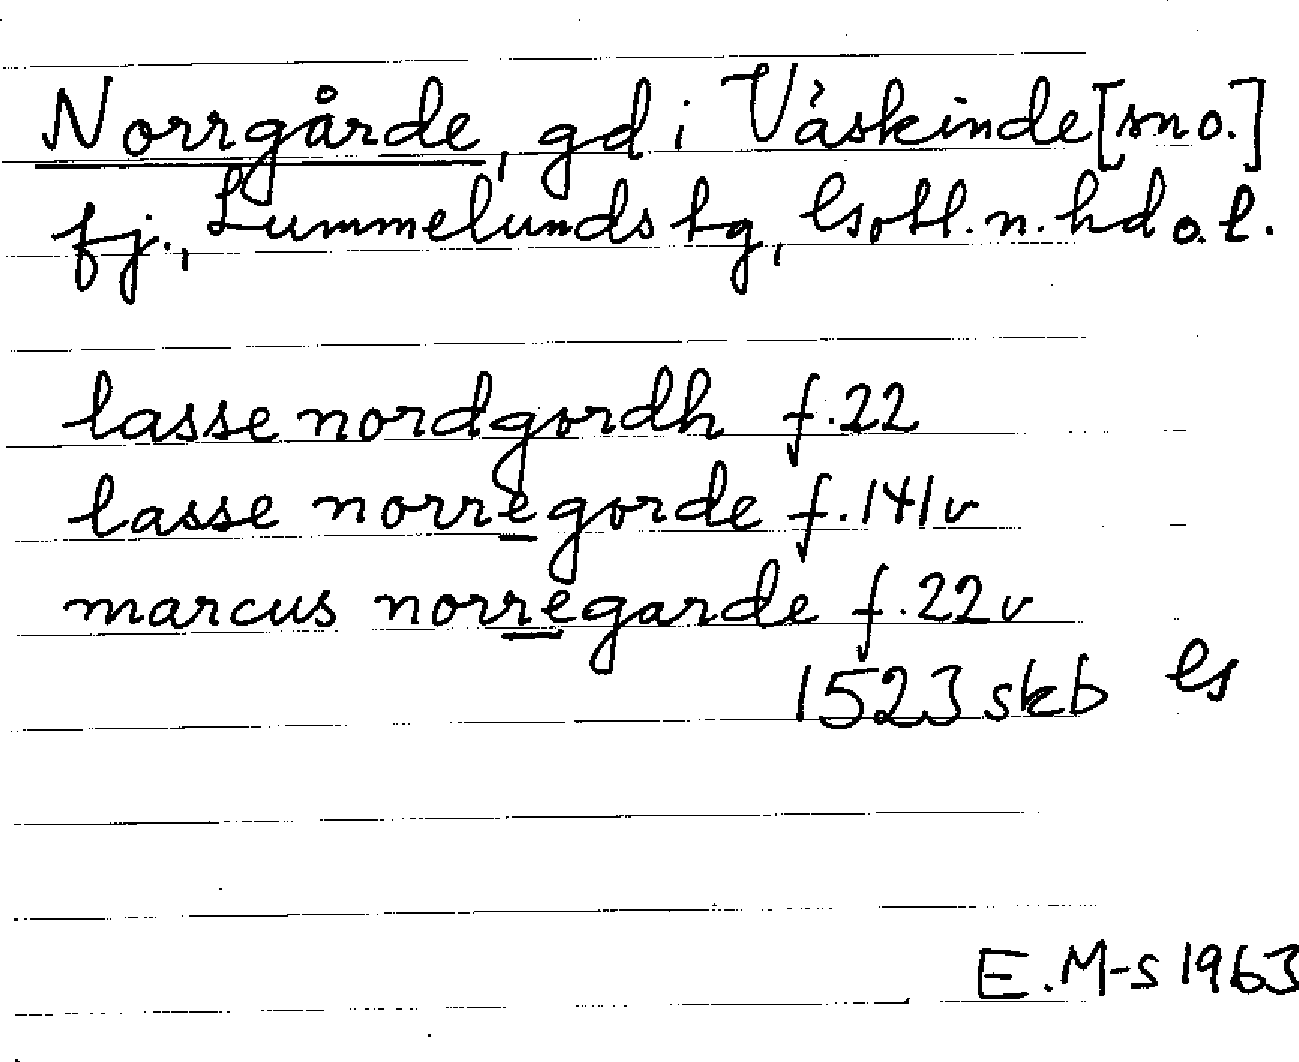 Norrgårde, gd i Väskinde [sn o.]
fj., Lummelunds tg, Gotl. n. hd o. l.
lasse nordgordh f. 22
lasse norregorde f. 141v
marcus norregarde f. 22v
1523 skb
E. M-s 1963